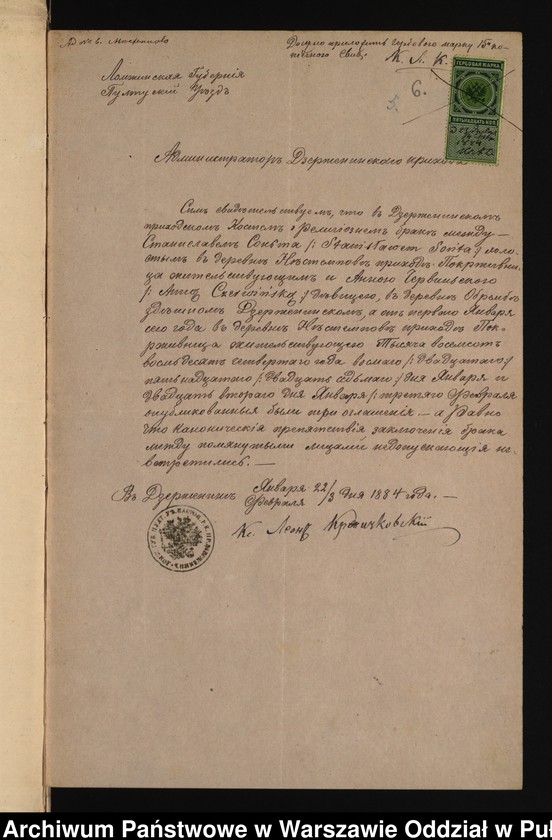 Должно приложить гербового марку 15 ко-
К. Л. К.
Ломжинская Губернія
Пултускій Уѣздъ
6.
5.
ГЕРБОВАЯ МАРКА
ПЯТЬНАДЦАТЬ КОП.
Администраторъ Дзерженинского прихода
Симъ свидѣтельствуемъ, что въ Дзерженинскомъ
приходскомъ Костелѣ о религіозномъ бракѣ между
Станиславомъ Сонкта /: Stanisławem Sonta :/ холо-
стымъ въ деревнѣ прихода Покржевни-
ца жительствующимъ и Анною Червинского
/: Anną Czerwińską :/ дѣвицею, въ деревнѣ
Дзерженинскомъ, а отъ первого Января
сего года въ деревнѣ прихода Пок-
ржевница жительствующего Тысяча восемсотъ
восьмьдесятъ четвертаго года восмаго /: двадцатаго :/
пятьнадцатаго /: двадцать седьмаго :/ дня Января и
двадцать втораго дня Января /: третяго Февраля
опубликованныя были при оглашенія. — а
что каноническія препятствія заключенія брака
между помянутыми лицами недопускающія не
встрѣтились. —
Въ Дзерженинѣ Января 22/3 дня 1884 года. —
Февраля
Кс. Леонъ
Archiwum Państwowe w Warszawie Oddział w Pu